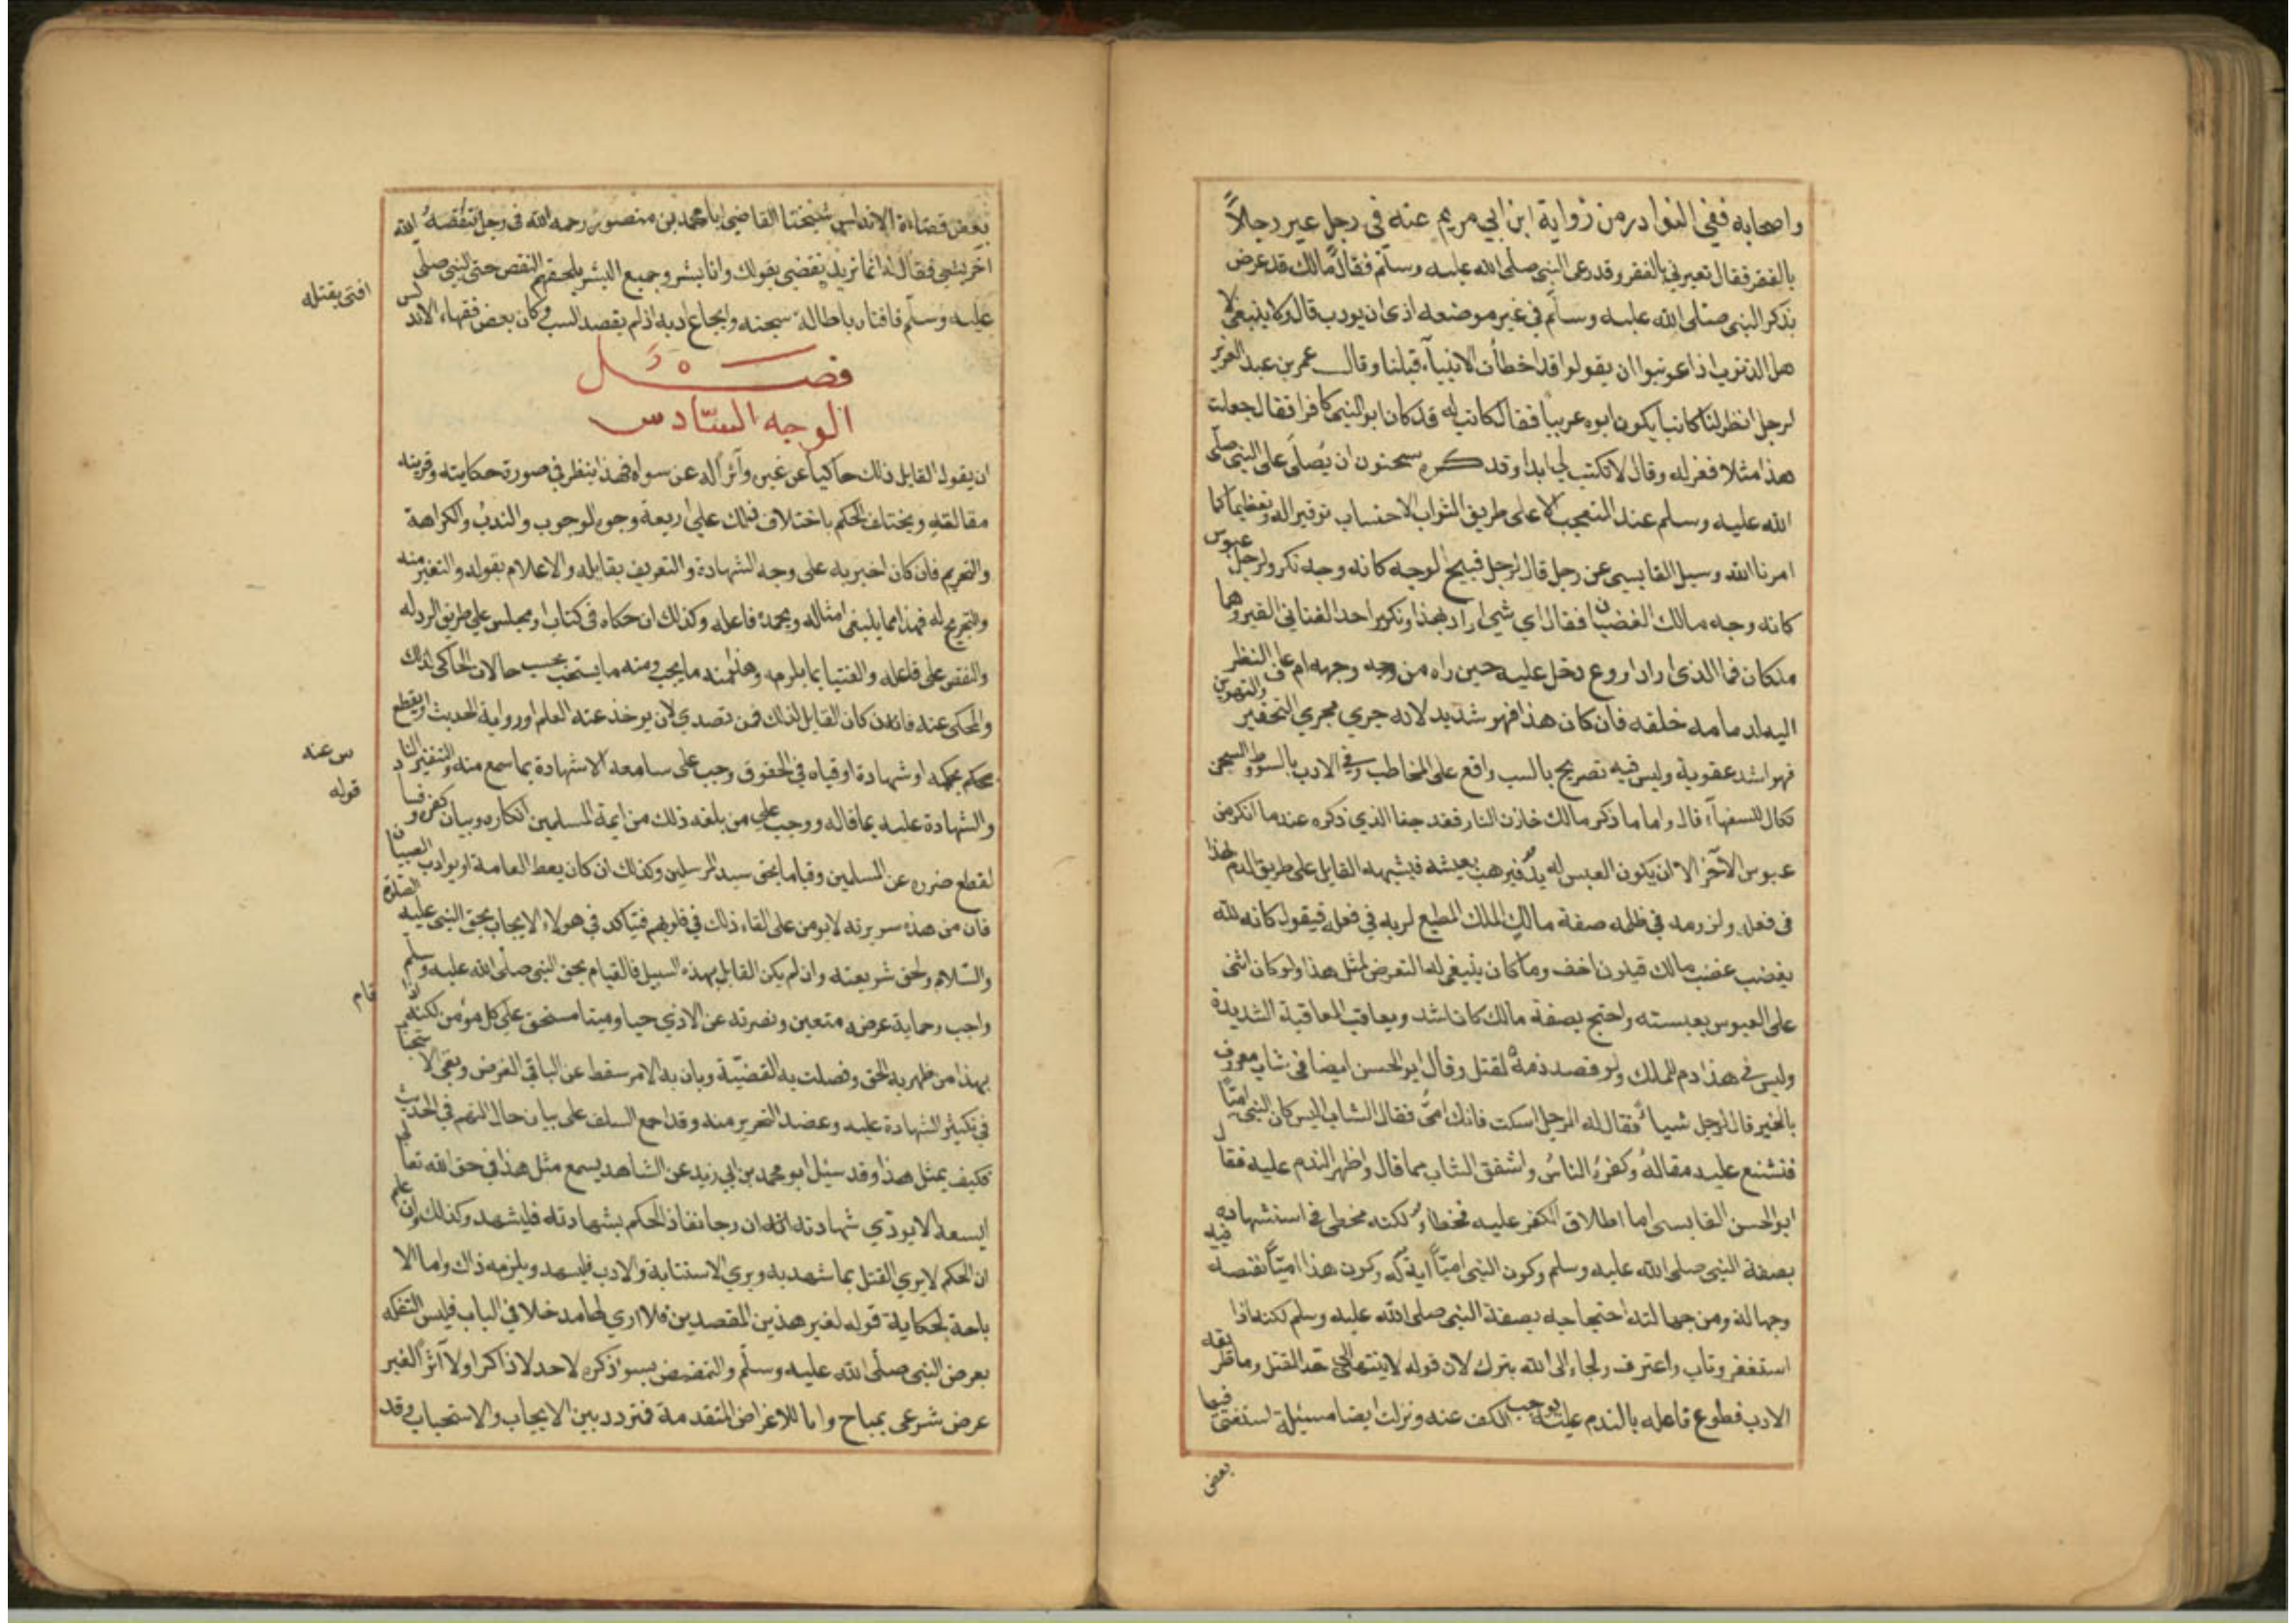 واصحابه ففي النوادر من رواية ابن ابي مريم عنه في رجل عير رجلاً
بالفقر فقال تعيرني بالفقر وقد رعى النبي صلى الله عليه وسلم فقال مالك قد عرض
بذكر النبي صلى الله عليه وسلم في غير موضعه اذى ان يودب قال ولا ينبغي لا
هل الذنوب اذا عوتبوا ان يقولوا قد اخطأت الانبيآء قبلنا وقال عمر بن عبد العزيز
لرجل انظر لنا كاتبا يكون ابوه عربيا فقال كاتب له قد كان ابو النبي كافرا فقال جعلت
هذا مثلا فعزله وقال لا تكتب لي ابدا وقد كره سحنون ان يُصلى على النبي صلى
الله عليه وسلم عند التعجب الا على طريق الثواب الاحتساب توقيرا له وتعظيما كما
امرنا الله وسيل القابسي عن رجل قال لرجل قبيح الوجه كانه وجه نكير ولرجل عبوس
كانه وجه مالك الغضبان فقال اي شي اراد بهذا ونكير احد الفتاني القبر وهما
ملكان فما الذي اراد اروع دخل عليه حين راه من وجهه ام عاف النظر
اليه لدمامه خلقه فان كان هذا فهو شديد لانه جري مجري التحقير والتهوين
فهو اشد عقوبة وليس فيه تصريح بالسب واقع على المخاطب وفي الادب بالسوط والسجن
نكال للسفهآء قال واما ما ذكر مالك خازن النار فقد جفا الذي ذكره عند ما انكر من
عبوس الآخر الا ان يكون العبس له يد فيرهب بعبسته فيشبهه القايل على طريق الذم لهذا
في فعله ولزومه في ظلمه صفة مالك الملك المطيع لربه في فعله فيقول كانه لله
يغضب غضب مالك فيكون اخف وما كان ينبغي له التعرض لمثل هذا ولو كان اثنى
على العبوس بعبسته واحتج بصفة مالك كان اشد ويعاقب المعاقبة الشديدة
وليس في هذا ذم للملك ولو قصد ذمه لقتل وقال ابو الحسن ايضا في شاب معروف
بالخير قال لرجل شيا فقال له الرجل اسكت فانك امي فقال الشاب اليس كان النبي اميا
فشنع عليه مقاله وكفره الناس واشفق الشاب مما قال واظهر الندم عليه فقال
ابو الحسن القابسي اما اطلاق الكفر عليه فخطأ ولكنه مخطي في استشهاده
بصفة النبي صلى الله عليه وسلم وكون النبي اميا اية له وكون هذا اميا نقيصه فيه
وجهالة ومن جهالته احتجاجه بصفة النبي صلى الله عليه وسلم لكنه اذا
استغفر وتاب واعترف ولجاء الى الله يترك لان قوله لا ينتهي الى حد القتل وما طريقه
الادب فطوع فاعله بالندم عليه يوجب الكف عنه ونزلت ايضا مسئلة استفتى فيها
بعض
بعض قضاة الاندلس شيخنا القاضي ابا محمد بن منصور رحمه الله في رجل تنقصه
آخر بشي فقال له انما تريد نقضي بقولك وانا بشر وجميع البشر يلحقهم النقص حتى النبي صلى الله
عليه وسلم فافتاه باطالة سجنه وايجاع ادبه اذ لم يقصد السب وكان بعض فقهاء الاندلس
افتى بقتله
فصل
الوجه السادس
ان يقول القايل ذلك حاكيا عن غيره وآثرا له عن سواه فهذا ينظر في صورة حكايته وقرينه
مقالته ويختلف الحكم باختلاف ذلك على اربعة وجوه الوجوب والندب والكراهة
والتحريم فان كان اخبر به على وجه الشهادة والتعريف بقايله والاعلام بقوله والتغير منه
والتجريح له فهذا مما ينبغي امتثاله ويحمد فاعله وكذلك ان حكاه في كتاب او مجلس على طريق الرد له
والنقض على قايله والفتيا بما يلزمه وهذا منه ما يجب ومنه ما يستحب بحسب حالات الحاكي لذلك
والمحكى عنه فان كان القايل لذلك ممن تصدي لان يوخذ عنه العلم او رواية الحديث او يقطع
بحكمه او شهادة او فتياه في الحقوق وجب على سامعه الاشهادة بما سمع منه والتنفير للناس عنه
والشهادة عليه بما قاله ووجب على من بلغه ذلك من ايمة المسلمين انكاره وبيان كفره وفساد قوله
لقطع ضرره عن المسلمين وقياما بحق سيد المرسلين وكذلك ان كان يعظ العامة او يوادب الصبيان
فان من هذه سريرته لا يومن على القاء ذلك في قلوبهم فيتاكد في هولاء الايجاب بحق النبي عليه الصلاة
والسلام ولحق شريعته وان لم يكن القايل بهذه السبيل فالقيام بحق النبي صلى الله عليه وسلم
واجب وحماية عرضه متعين ونصرته عن الاذي حيا وميتا مستحق على كل مؤمن لكنه اذا قام
بهذا من ظهر به الحق وفصلت به القضية وبان به الامر سقط عن الباقي الفرض وبقي الاستحباب
في تكثير الشهادة عليه وعضد التحرير منه وقد اجمع السلف على بيان حال المتهم في الحديث
فكيف بمثل هذا وقد سئل ابو محمد بن ابي زيد عن الشاهد يسمع مثل هذا في حق الله تعالى
ايسعه الا يودي شهادته ان رجا نفاذ الحكم بشهادته فليشهد وكذلك ان علم
ان الحكم لا يري القتل بما شهد به ويري الاستتابة والادب فليشهد ويلزمه ذلك واما الا
باحة لحكاية قوله لغير هذين المقصدين فلا اري لها مدخلا في الباب فليس التفكه
بعرض النبي صلى الله عليه وسلم والتمضمض بسو ذكره لاحد لا ذاكرا ولا آثرا لغير
عرض شرعي بمباح واما للاغراض المتقدمة فتردد بين الايجاب والاستحباب وقد